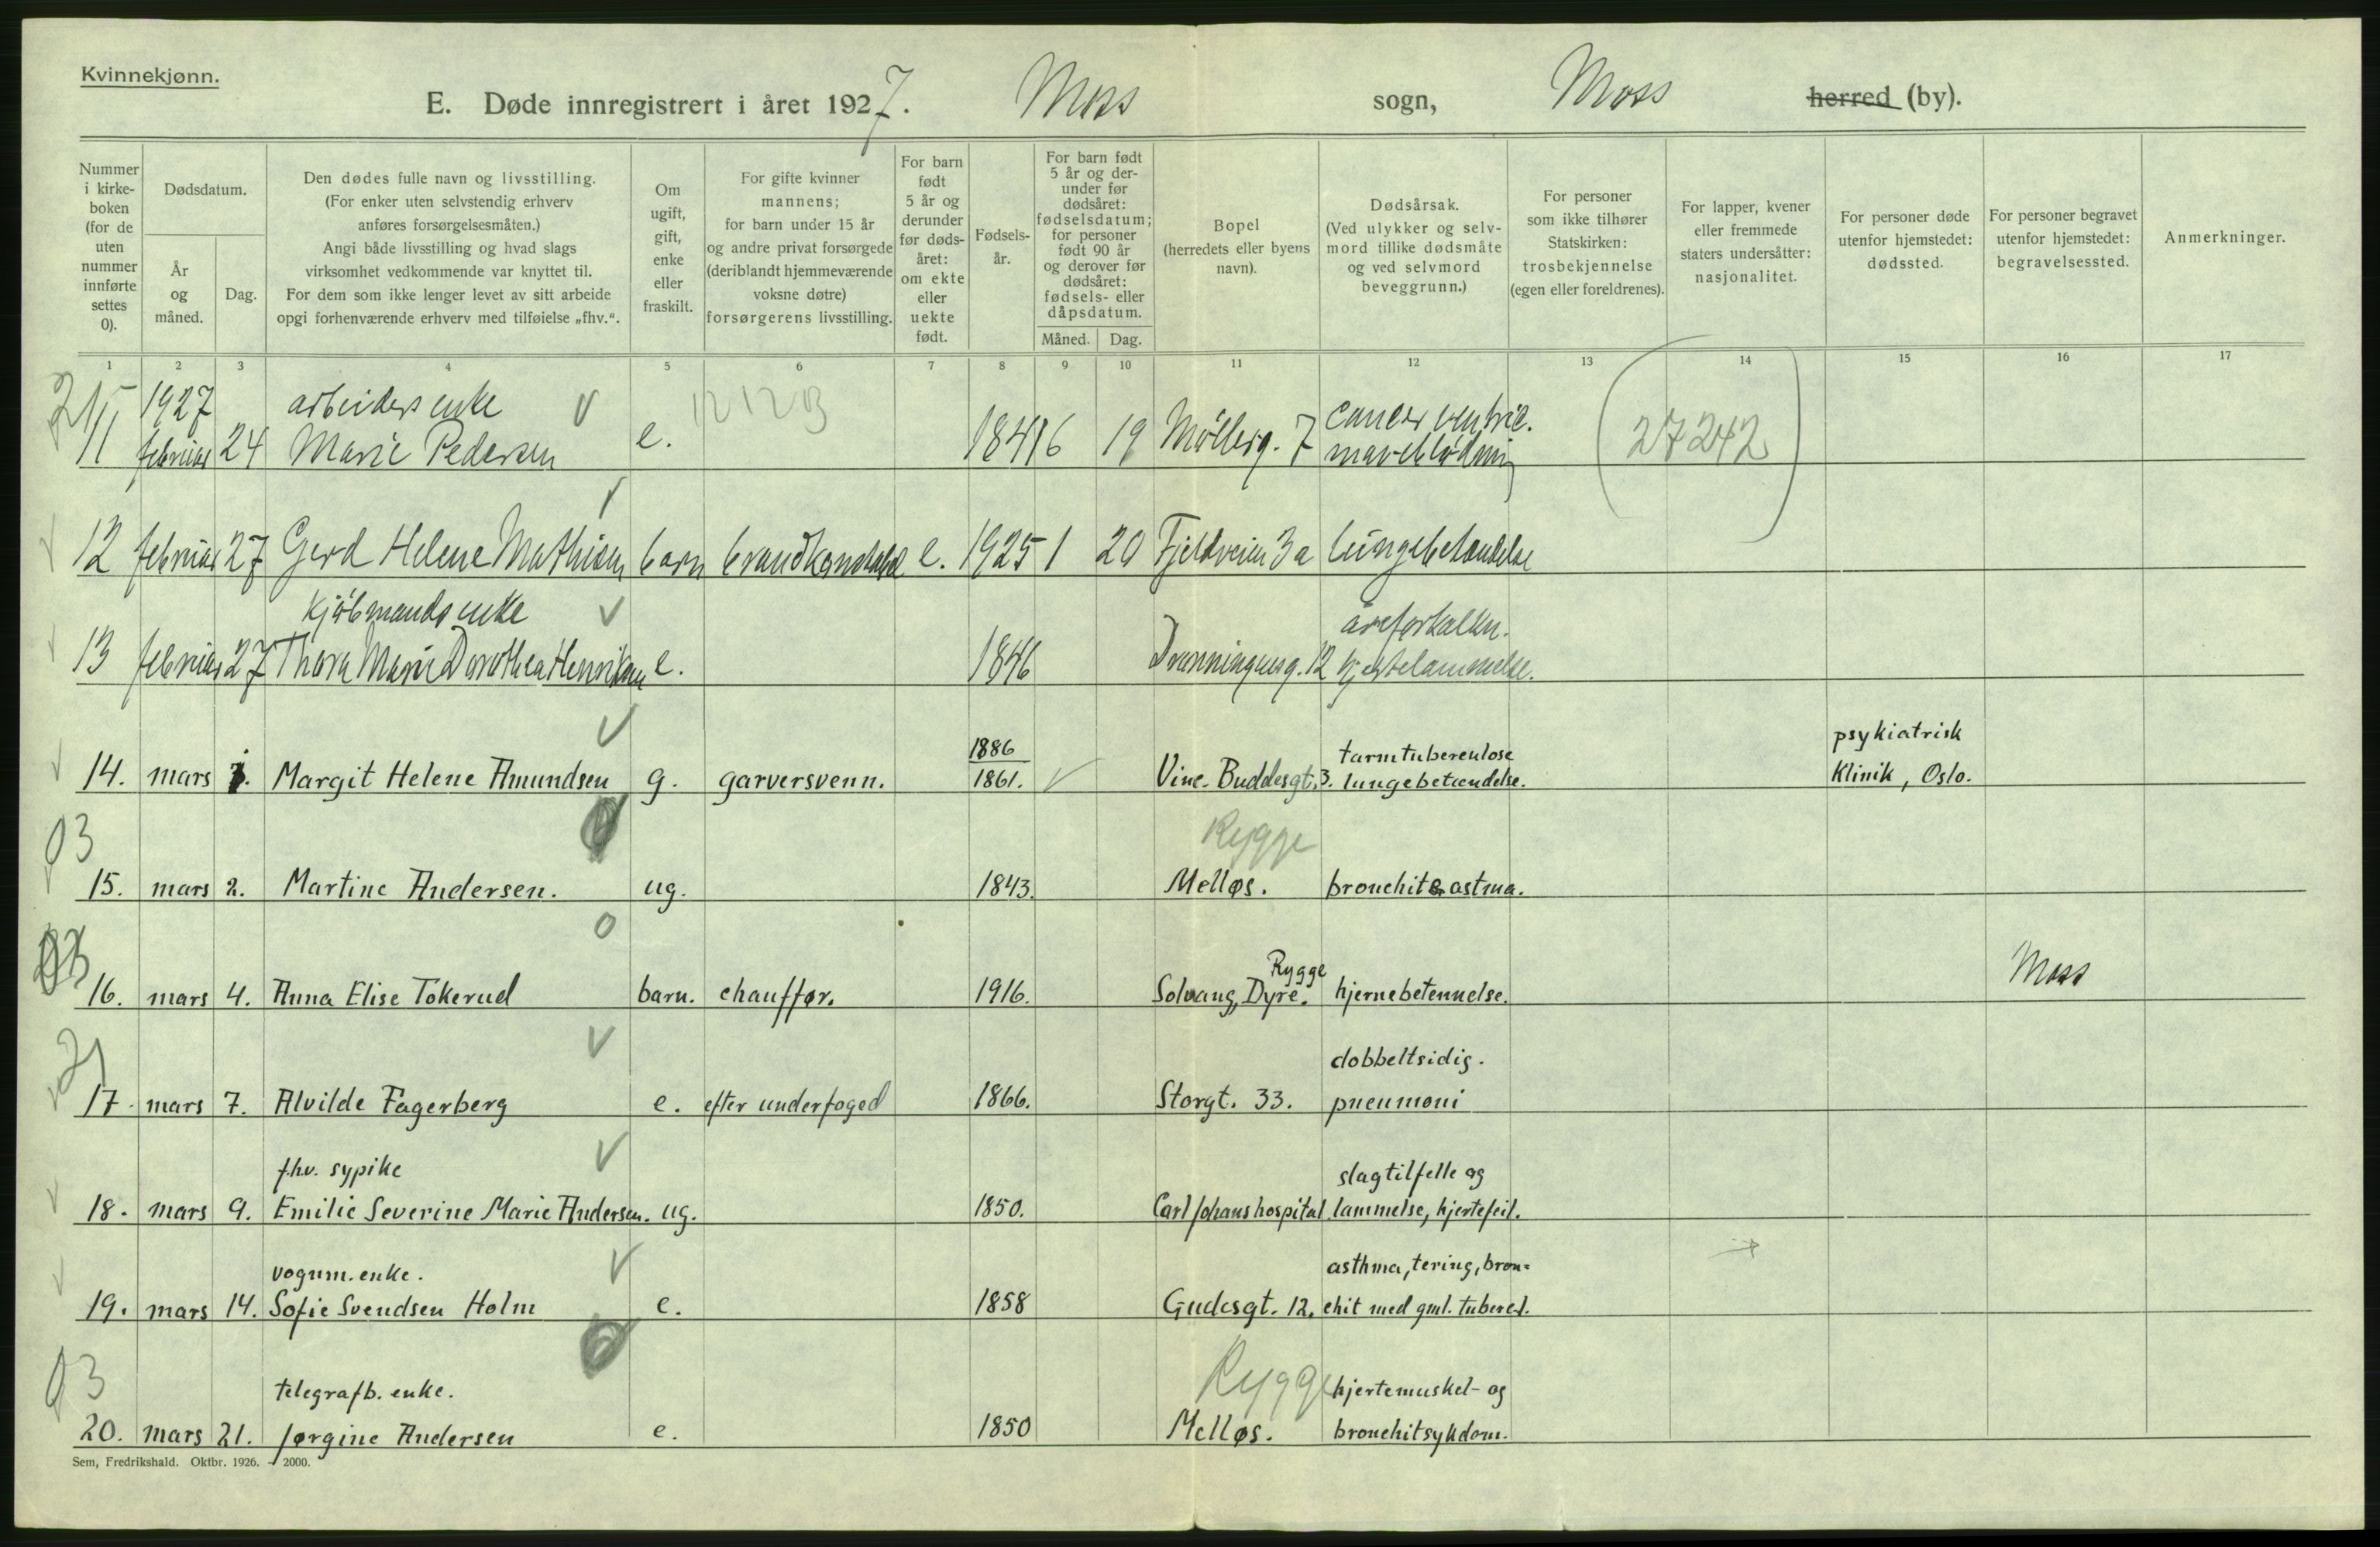 Kvinnekjønn.
E. Døde innregistrert i året 1927. Moss sogn, Moss herred (by).
Nummer i kirke-boken (for de uten nummer innførte settes 0).
Dødsdatum.
År og måned.
Dag.
Den dødes fulle navn og livsstilling.
(For enker uten selvstendig erhverv
anføres forsørgelsesmåten.)
Angi både livsstilling og hvad slags
virksomhet vedkommende var knyttet til.
For dem som ikke lenger levet av sitt arbeide
opgi forhenværende erhverv med tilføielse „fhv.“.
Om ugift, gift, enke eller fraskilt.
For gifte kvinner
mannens;
for barn under 15 år
og andre privat forsørgede
(deriblandt hjemmeværende
voksne døtre)
forsørgerens livsstilling.
For barn født 5 år og derunder før døds-året: om ekte eller uekte født.
Fødsels-år.
For barn født
5 år og der-
under før
dødsåret:
fødselsdatum;
for personer
født 90 år
og derover før
dødsåret:
fødsels- eller
dåpsdatum.
Måned. Dag.
Bopel
(herredets eller byens
navn).
Dødsårsak.
(Ved ulykker og selv-
mord tillike dødsmåte
og ved selvmord
beveggrunn.)
For personer
som ikke tilhører
Statskirken:
trosbekjennelse
(egen eller foreldrenes).
For lapper, kvener
eller fremmede
staters undersåtter:
nasjonalitet.
For personer døde
utenfor hjemstedet:
dødssted.
For personer begravet
utenfor hjemstedet:
begravelsessted.
Anmerkninger.
1 2 3 4 5 6 7 8 9 10 11 12 13 14 15 16 17
1927 arbeiders enke 12123 cancer ventric.
11 februar 24 Marie Pedersen e. 1841 6 19 Møllerg. 7 maveblødning (27242)
12 februar 27 Gerd Helene Mathisen barn brandkonstabel e. 1925 1 20 Fjeldveien 3a lungebetændelse
kjøbmands enke åreforkalkn.
13 februar 27 Thora Marie Dorothea Henriksen e. 1846 Dronningensg. 12 hjertelammelse.
1886 tarmtuberculose psykiatrisk
14. mars Margit Helene Amundsen g. garversvenn. 1861. Vinc. Buddesgt. 3. lungebetændelse. Klinik, Oslo.
03 Rygge
15. mars 2. Martine Andersen. ug. 1843. Melløs. bronchit & astma.
Rygge
16. mars 4. Anna Elise Tokerud barn. chauffør. 1916. Solvang, Dyre. hjernebetennelse. Moss
21 dobbeltsidig.
17. mars 7. Alvilde Fagerberg e. efter underfoged 1866. Storgt. 33. pneumoni
fhv. sypike slagtilfelle og
18. mars 9. Emilie Severine Marie Andersen. ug. 1850. Carl Johans hospital lammelse, hjertefeil.
vognm. enke. asthma, tering, bron=
19. mars 14. Sofie Svendsen Holm e. 1858 Gudesgt. 12. chit med gml. tubercl.
03 telegrafb. enke. Rygge hjertemuskel- og
20. mars 21. Jørgine Andersen e. 1850 Melløs. bronchitsykdom.
Sem, Fredrikshald. Oktbr. 1926. - 2000.